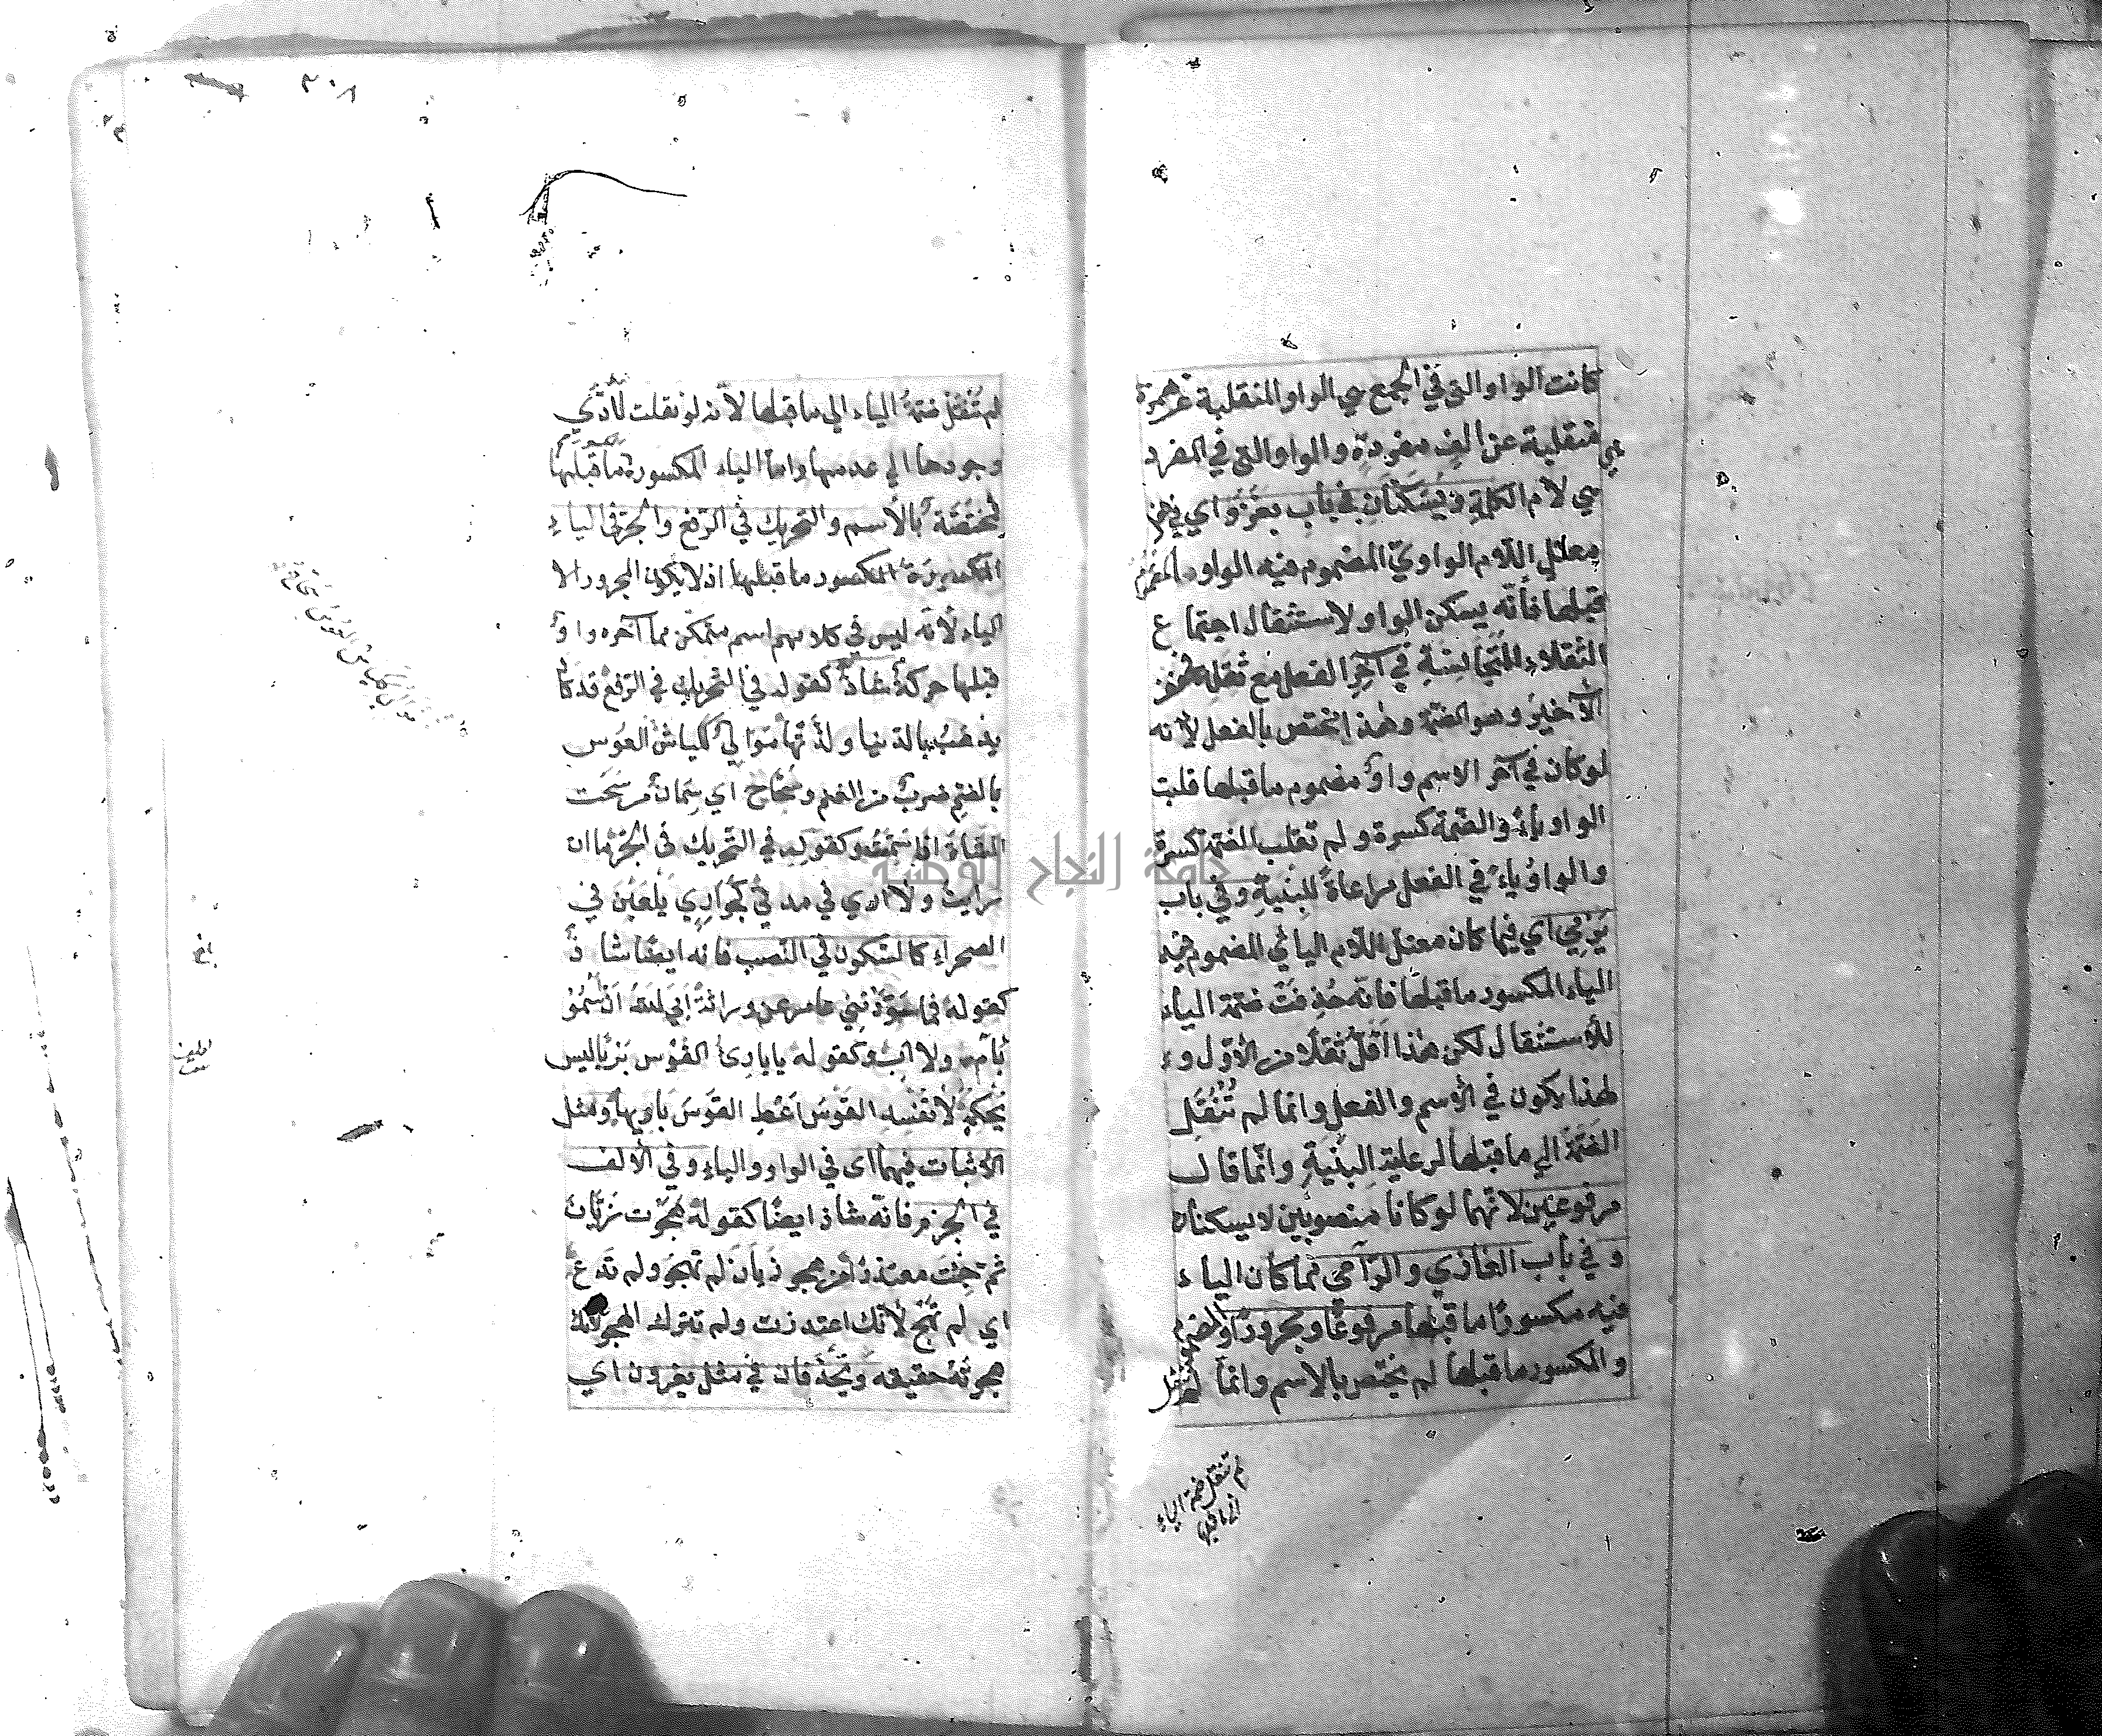 كانت الواو التي في الجمع هي الواو المنقلبة عن همزة
هي منقلبة عن الف مفردةٍ والواو التي في المفرد
هي لام الكلمةِ وتُسَكَّنَانِ في باب يغزُو اي في
معتل اللام الواويّ المضموم فيه الواو المضموم
قبلها فأنّه يسكن الواو لاستثقال اجتماع
الثقلاء المتجانسةِ في آخِرِ الفعل مع ثقله
الأخير وهو الضمة وهذا يختص بالفعل لأنه
لو كان في آخر الاسم واوٌ مضموم ما قبلها قلبت
الواو ياءً والضمة كسرة ولم تقلب الضمة كسرة
والواوُ ياءً في الفعل مراعاةً للبِنْيةِ وفي باب
يَرْمِي اي فيما كان معتل اللام اليائي المضموم فيه
الياء المكسور ما قبلها فانّه حُذِفَتْ ضمّة الياء
للأستثقال لكن هذا اَقَلُّ ثقلًا من الأوّل و
لهذا يكون في الأسم والفعل وانما لم تُنْقَلِ
الضمّة الى ما قبلها لرعاية البِنْيَةِ وانّما قال
مرفوعَيْنِ لأنّهما لو كانا منصوبين لا يسكنان
وفي باب الغازي والرّامي مما كان الياء
فيه مكسورًا ما قبلها مرفوعًا ومجرورًا
والمكسور ما قبلها لم يختص بالاسم وانّما لم تنقل
لم تنقل ضمة الياء
الى ما قبلها
٣٠٨
لم تُنْقَلْ ضمّةُ الياء الي ما قبلها لأنّه لو نقلت لَأَدَّي
وجودها الي عدمها وامّا الياء المكسورة ما قبلها
مختصّة بالأسم والتحريك في الرّفع والجرّ في الياء
المكسورة المكسور ما قبلها اذ لا يكون المجرور الا
الياء لأنّه ليس في كلامهم اسم متمكن مما آخره واوٌ
قبلها حركةٌ شاذّ كقوله في التّحريك في الرّفع قد كاد
يذهبُ بالدّنيا ولذّتها مَوَالِيٌ ككباش العُوس
بالضمّ ضربٌ من الغنم وسُحَّاحٌ اي سِمَانٌ من سَحَّت
الشاة اذا سَمِنَتْ وكقوله في التّحريك في الجرّ ما ان
رأيتُ ولا اري في مدتي كَجَوارِيٍ يلعَبْنَ في
الصحراء كالسّكون في النّصب فانه ايضًا شاذٌّ
كقوله فما سَوَّدَتْني عامر عن وراثةٍ اَبَي اللهُ اَنْ اَسْمُوْ
بأمّ ولا اَبٍ وكقوله يا باريَ القَوْس بَرْيًا ليس
يُحْكِمُه لا تُفْسِدِ القوسَ اَعْطِ القوسَ باريها ومثل
الأثبات فيهما اى في الواو والياء وفي الألف
في الجزم فانّه شاذ ايضًا كقوله هَجَوْتَ زَبّانَ
ثم جِئْتَ معتذرًا من هجو زبّان لم تهجو ولم تدع
اي لم تهجُ لأنّك اعتذرت ولم تترك الهجو لأنّك
هجوتَهُ حقيقة وتُحْذَفان في مثل يغزون اي